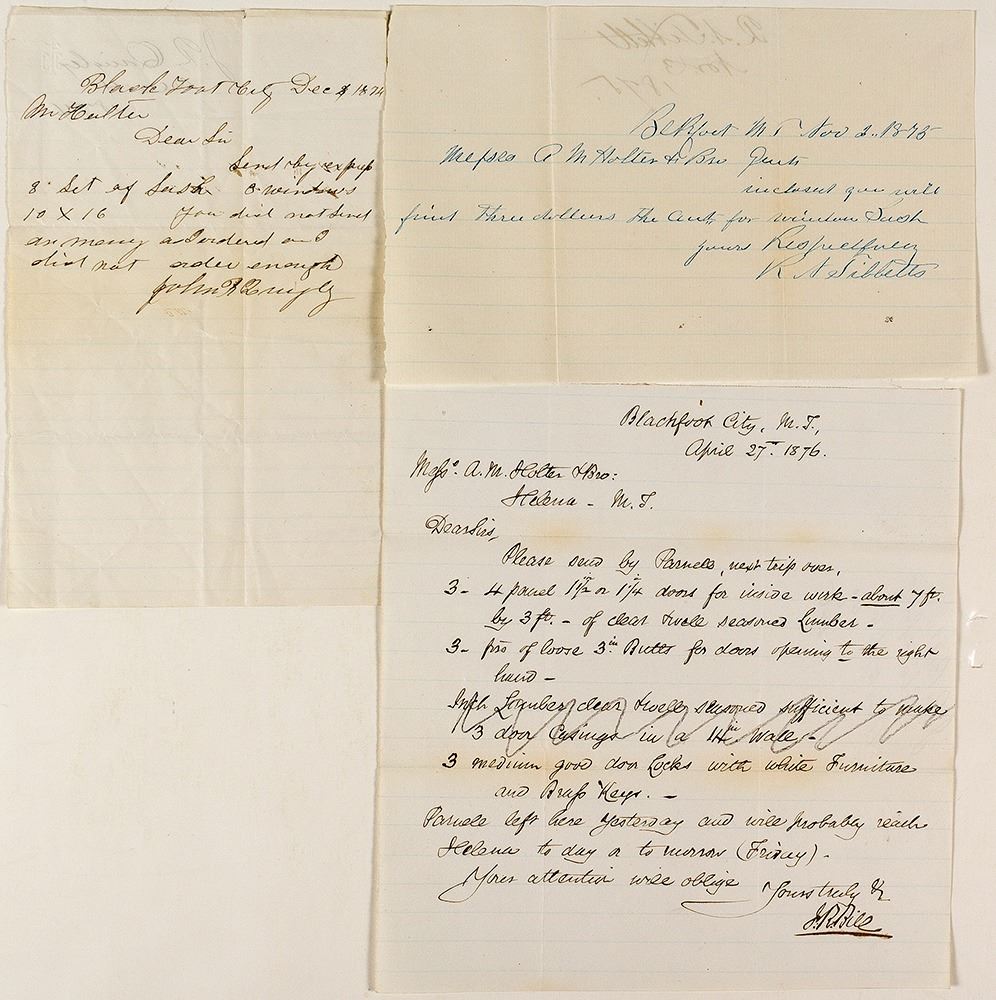 Black Foot City Dec 1874
Mr Holter
Dear Sir
Send by express
8 Set of Sash 3 windows
10 X 16 You did not Send
as many as I ordered or I
did not order enough
John R Quigly
R. N. Tibbetts
Nov. 3
1875.
Belfort M T Nov 3. 1875
Messrs A M Holter & Bro Gents
inclosed you will
find three dollers the amt for window Sash
yours Respectfuly
R N Tibbetts
Blackfoot City, M. T.,
April 27th. 1876.
Messrs. A. M. Holter & Bro:
Helena - M. T.
Dear Sirs,
Please send by Parnell, next trip over,
3 - 4 panel 1 1/2 or 1 1/4 doors for inside work - about 7 ft.
by 3 ft. - of clear & well seasoned Lumber -
3 - prs of loose 3 in Butts for doors opening to the right
hand -
Inch Lumber clear & well seasoned sufficient to make
3 door Casings in a 14 in Wall -
3 medium good door Locks with white Furniture
and Brass Keys. -
Parnell left here yesterday and will probably reach
Helena to day or to morrow (Friday) -
Your attention will oblige Yours truly &c
J. R. Bill